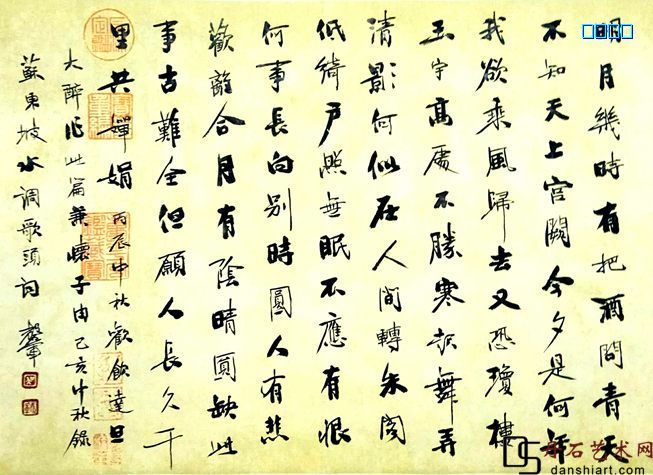 明月幾時有把酒問青天
不知天上宮闕今夕是何年
我欲乘風歸去又恐瓊樓
玉宇高處不勝寒起舞弄
清影何似在人間轉朱閣
低綺户照無眠不應有恨
何事長向别時圓人有悲
歡離合月有陰晴圓缺此
事古難全但願人長久千
里共嬋娟 丙辰中秋歡飲達旦
大醉作此篇兼懷子由 己亥中秋錄
蘇東坡水调歌頭词
石艺术网
danshiart.com